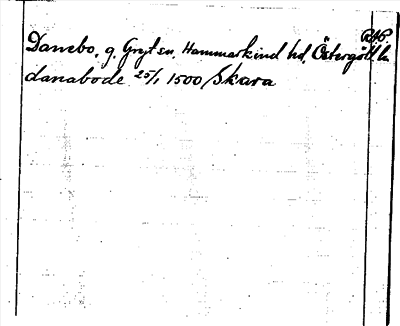 RAP
Danebo, g. Gryt sn, Hammarkind hd, Östergötl. l.
danabode 25/1 1500 Skara